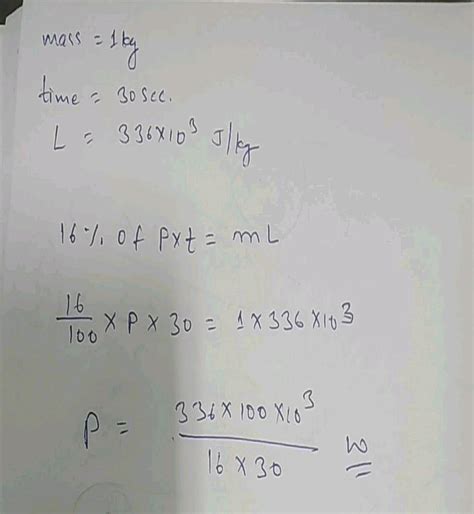 mass = 1kg
time = 30 Sec.
L = 336×10³ J/kg
16% of P×t = mL
16/100 × P × 30 = 1 × 336 × 10³
P = 336 × 100 × 10³ / 16 × 30 W